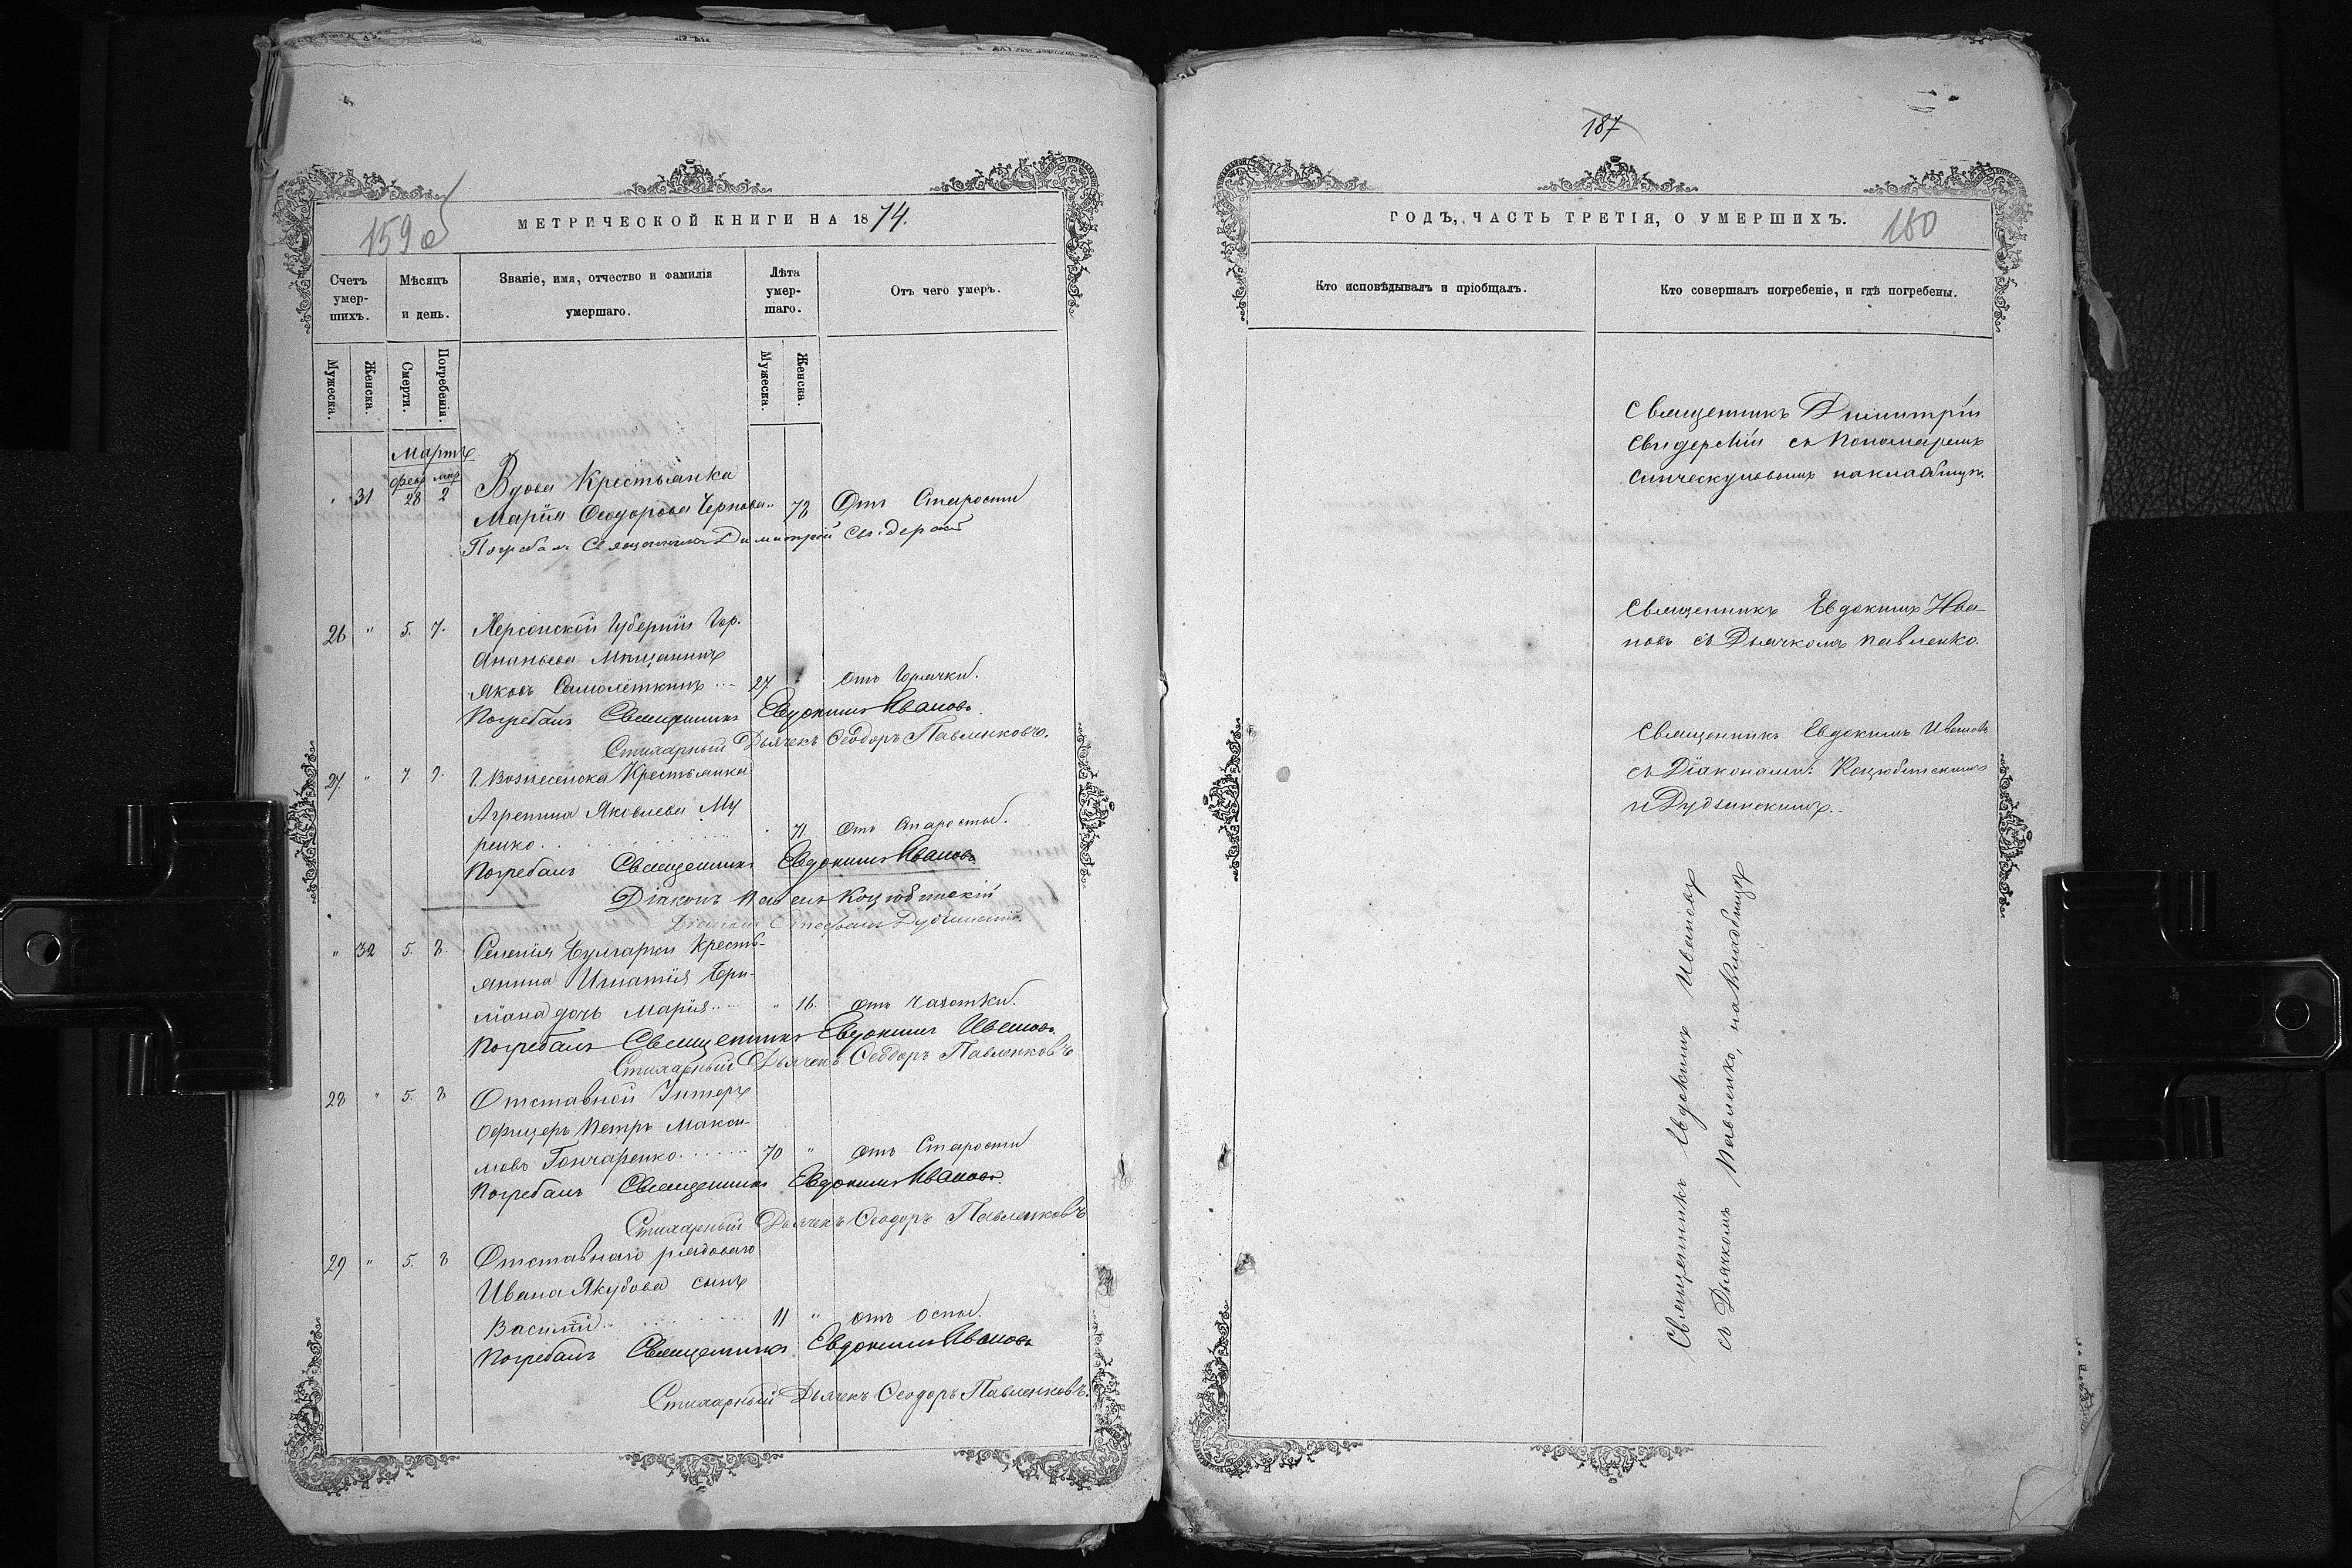 187
159 об
МЕТРИЧЕСКОЙ КНИГИ НА 1874.
Счетъ умер-шихъ.
Мѣсяцъ и день.
Званіе, имя, отчество и фамилія умершаго.
Лѣта умер-шаго.
Отъ чего умеръ.
Мужеска.
Женска.
Смерти.
Погребенія.
Мужеска.
Женска.
Мартъ
февр мар
" 31 28 2 Вдова Крестьянка
Марія Ѳеодорова Чернова " 78 Отъ Старости
Погребалъ Священникъ Димитрій Свидерскій
26 " 5. 7. Херсонской Губерніи Гор.
Ананьева Мѣщанинъ
Яковъ Самолёткинъ 27 " отъ Горячки.
Погребалъ Священникъ Евдокимъ Ивановъ.
Стихарный Дьячекъ Ѳеодоръ Павленковъ.
27. " 7. 9. Г. Вознесенска Крестьянка
Агрепина Яковлева Му
ренко " 71. отъ Старости.
Погребалъ Священникъ Евдокимъ Ивановъ
Діаконъ Коцюбинскій
Діаконъ Стефанъ
" 32 5. 8. Селенія Булгарки Кресть-
янина Игнатія
дочь Марія " 16. отъ Чахотки.
Погребалъ Священникъ Евдокимъ Ивановъ.
Стихарный Дьячекъ Ѳеодоръ Павленковъ
28 " 5. 8. Отставной Унтеръ
Офицеръ Петръ Макси-
мовъ Гончаренко 70 " отъ Старости
Погребалъ Священникъ Евдокимъ Ивановъ.
Стихарный Дьячекъ Ѳеодоръ Павленковъ
29 " 5. 8 Отставнаго рядоваго
Ивана Якубова сынъ
Василій 11 " отъ оспы.
Погребалъ Священникъ Евдокимъ Ивановъ
Стихарный Дьячекъ Ѳеодоръ Павленковъ.
ГОДЪ, ЧАСТЬ ТРЕТІЯ, О УМЕРШИХЪ.
160
Кто исповѣдывалъ и пріобщалъ.
Кто совершалъ погребеніе, и гдѣ погребены.
Священникъ Димитрій
Свидерскій съ Пономаремъ
на кладбищѣ.
Священникъ Евдокимъ Ива-
новъ съ Дьячкомъ Павленко.
Священникъ Евдокимъ Ивановъ
съ Діаконами: Коцюбинскимъ
и
Священникъ Евдокимъ Ивановъ
съ Дьячкомъ Павленко, на Кладбищѣ